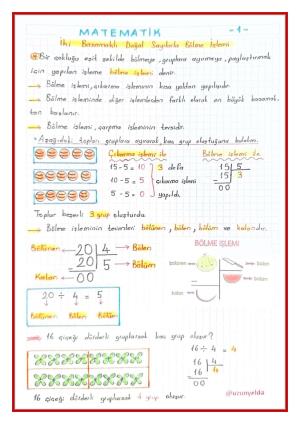 MATEMATİK -1-
İki Basamaklı Doğal Sayılarla Bölme İşlemi
Bir çokluğu eşit şekilde bölmeye, gruplara ayırmaya, paylaştırmak
için yapılan işleme bölme işlemi denir.
Bölme işlemi, çıkarma işleminin kısa yoldan yapılışıdır.
Bölme işleminde diğer işlemlerden farklı olarak en büyük basamak-
tan başlanır.
Bölme işlemi, çarpma işleminin tersidir.
Aşağıdaki topları gruplara ayırarak, kaç grup oluştuğunu bulalım.
Çıkarma işlemi ile Bölme işlemi ile
15 - 5 = 10 3 defa 15 5
10 - 5 = 5 çıkarma işlemi 15 3
5 - 5 = 0 yapıldı 00
Toplar beşerli 3 grup oluşturdu.
Bölme işleminin terimleri bölünen, bölen, bölüm ve kalandır.
BÖLME İŞLEMİ
Bölünen 20 4 Bölen
20 5 Bölüm
Kalan 00
bölünen bölen
kalan bölüm
20 ÷ 4 = 5
Bölünen Bölen Bölüm
16 çiçeği dörderli gruplarsak kaç grup oluşur?
16 ÷ 4 = 4
16 4
16 4
00
16 çiçeği dörderli gruplarsak 4 grup oluşur.
@uzunyelda